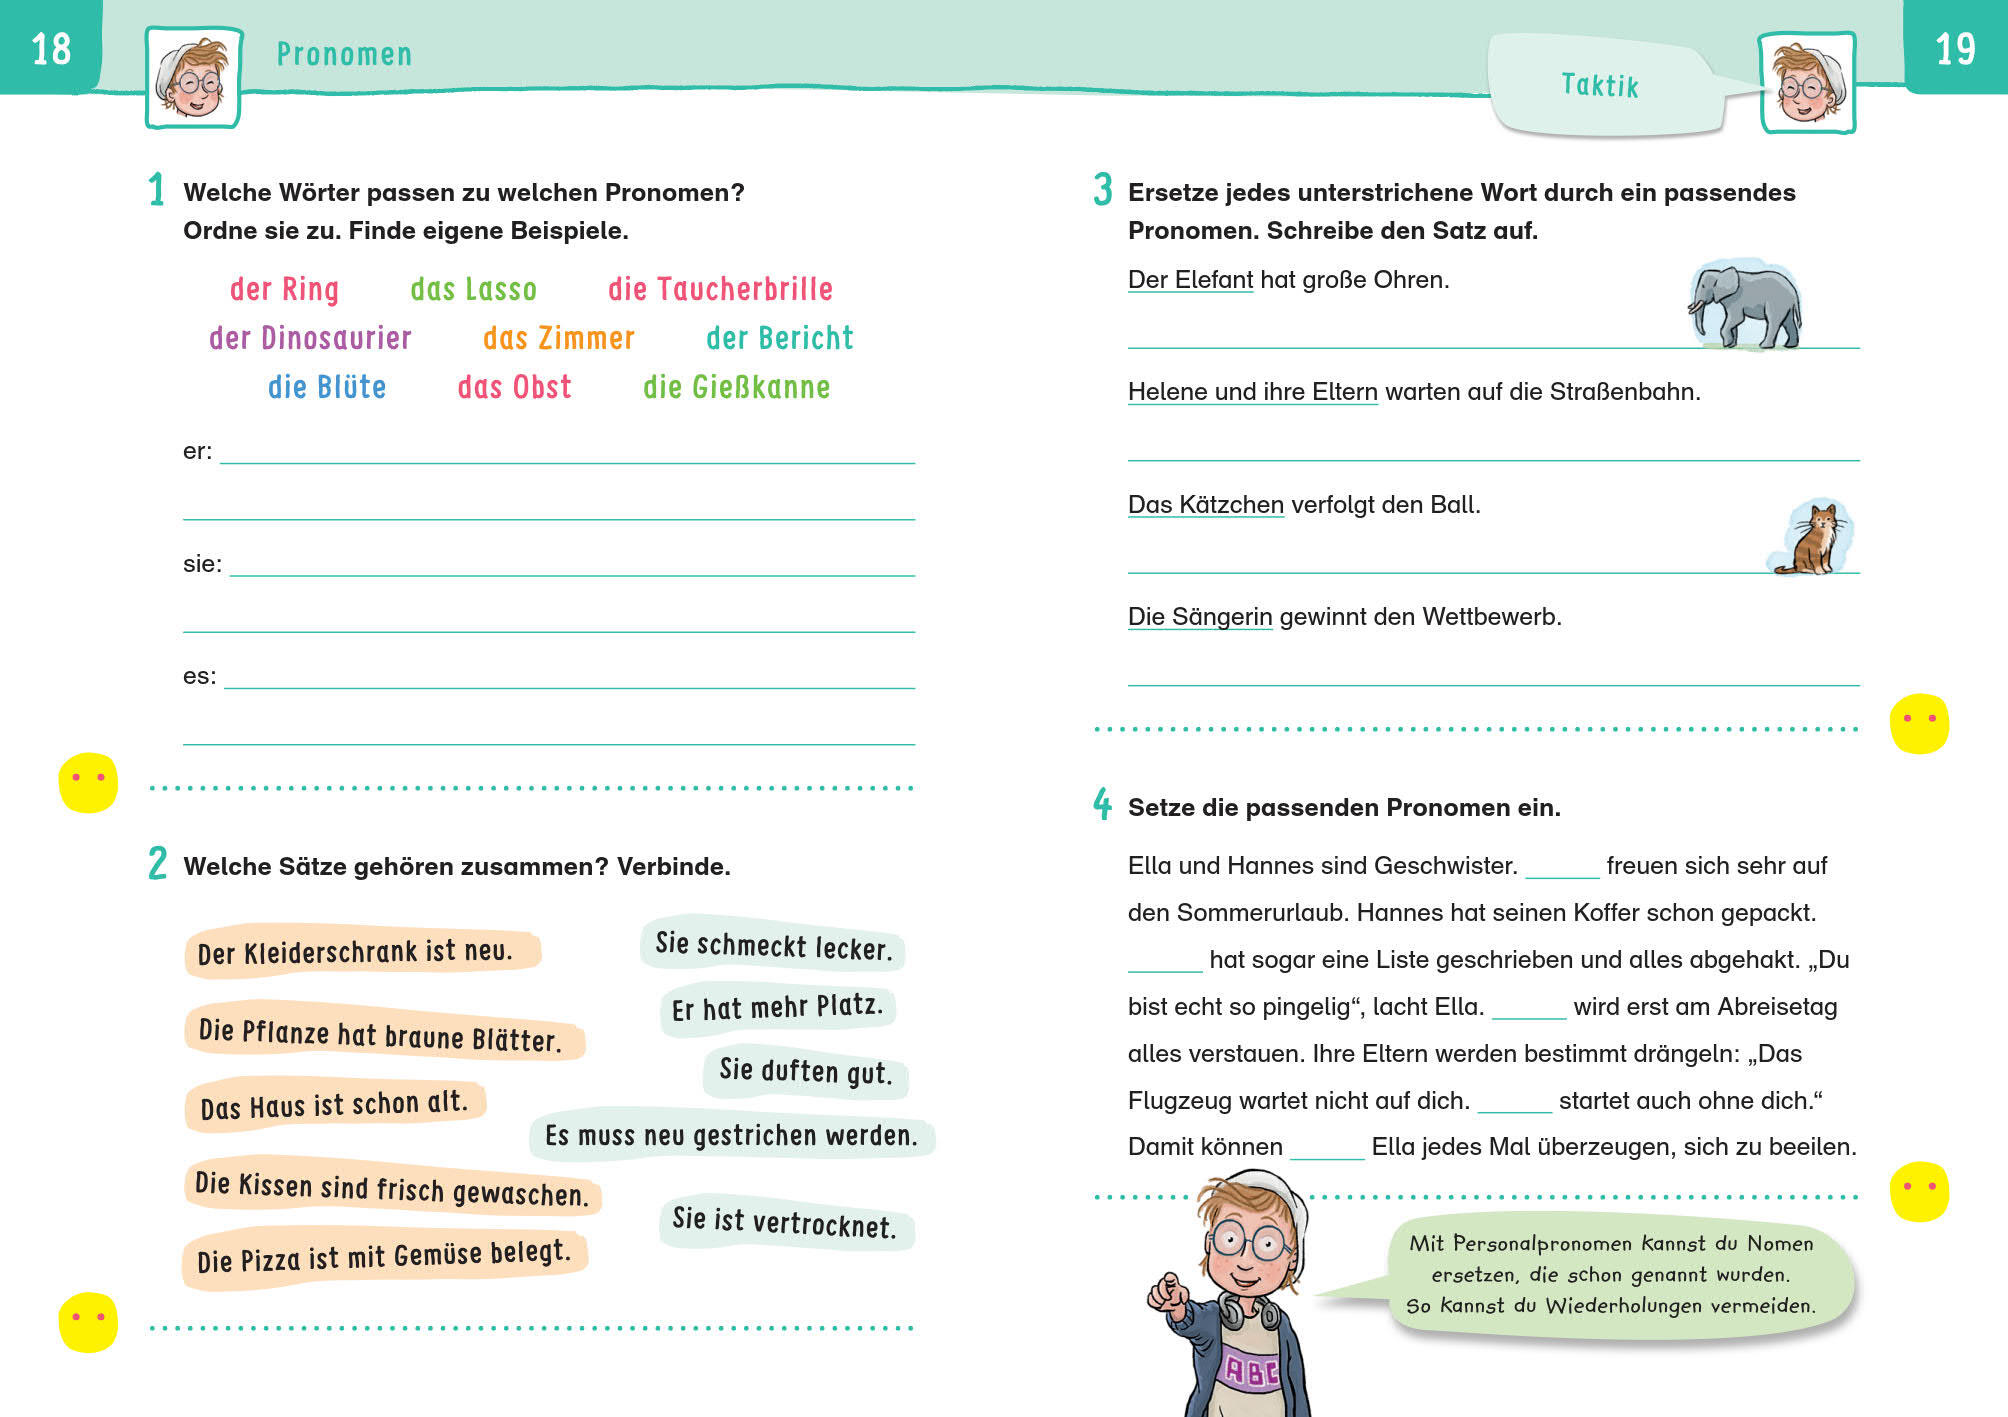 18
Pronomen
1 Welche Wörter passen zu welchen Pronomen?
Ordne sie zu. Finde eigene Beispiele.
der Ring das Lasso die Taucherbrille
der Dinosaurier das Zimmer der Bericht
die Blüte das Obst die Gießkanne
er:
sie:
es:
2 Welche Sätze gehören zusammen? Verbinde.
Der Kleiderschrank ist neu.
Die Pflanze hat braune Blätter.
Das Haus ist schon alt.
Die Kissen sind frisch gewaschen.
Die Pizza ist mit Gemüse belegt.
Sie schmeckt lecker.
Er hat mehr Platz.
Sie duften gut.
Es muss neu gestrichen werden.
Sie ist vertrocknet.
Taktik
19
3 Ersetze jedes unterstrichene Wort durch ein passendes
Pronomen. Schreibe den Satz auf.
Der Elefant hat große Ohren.
Helene und ihre Eltern warten auf die Straßenbahn.
Das Kätzchen verfolgt den Ball.
Die Sängerin gewinnt den Wettbewerb.
4 Setze die passenden Pronomen ein.
Ella und Hannes sind Geschwister. ______ freuen sich sehr auf
den Sommerurlaub. Hannes hat seinen Koffer schon gepackt.
______ hat sogar eine Liste geschrieben und alles abgehakt. „Du
bist echt so pingelig“, lacht Ella. ______ wird erst am Abreisetag
alles verstauen. Ihre Eltern werden bestimmt drängeln: „Das
Flugzeug wartet nicht auf dich. ______ startet auch ohne dich.“
Damit können ______ Ella jedes Mal überzeugen, sich zu beeilen.
ABC
Mit Personalpronomen kannst du Nomen
ersetzen, die schon genannt wurden.
So kannst du Wiederholungen vermeiden.